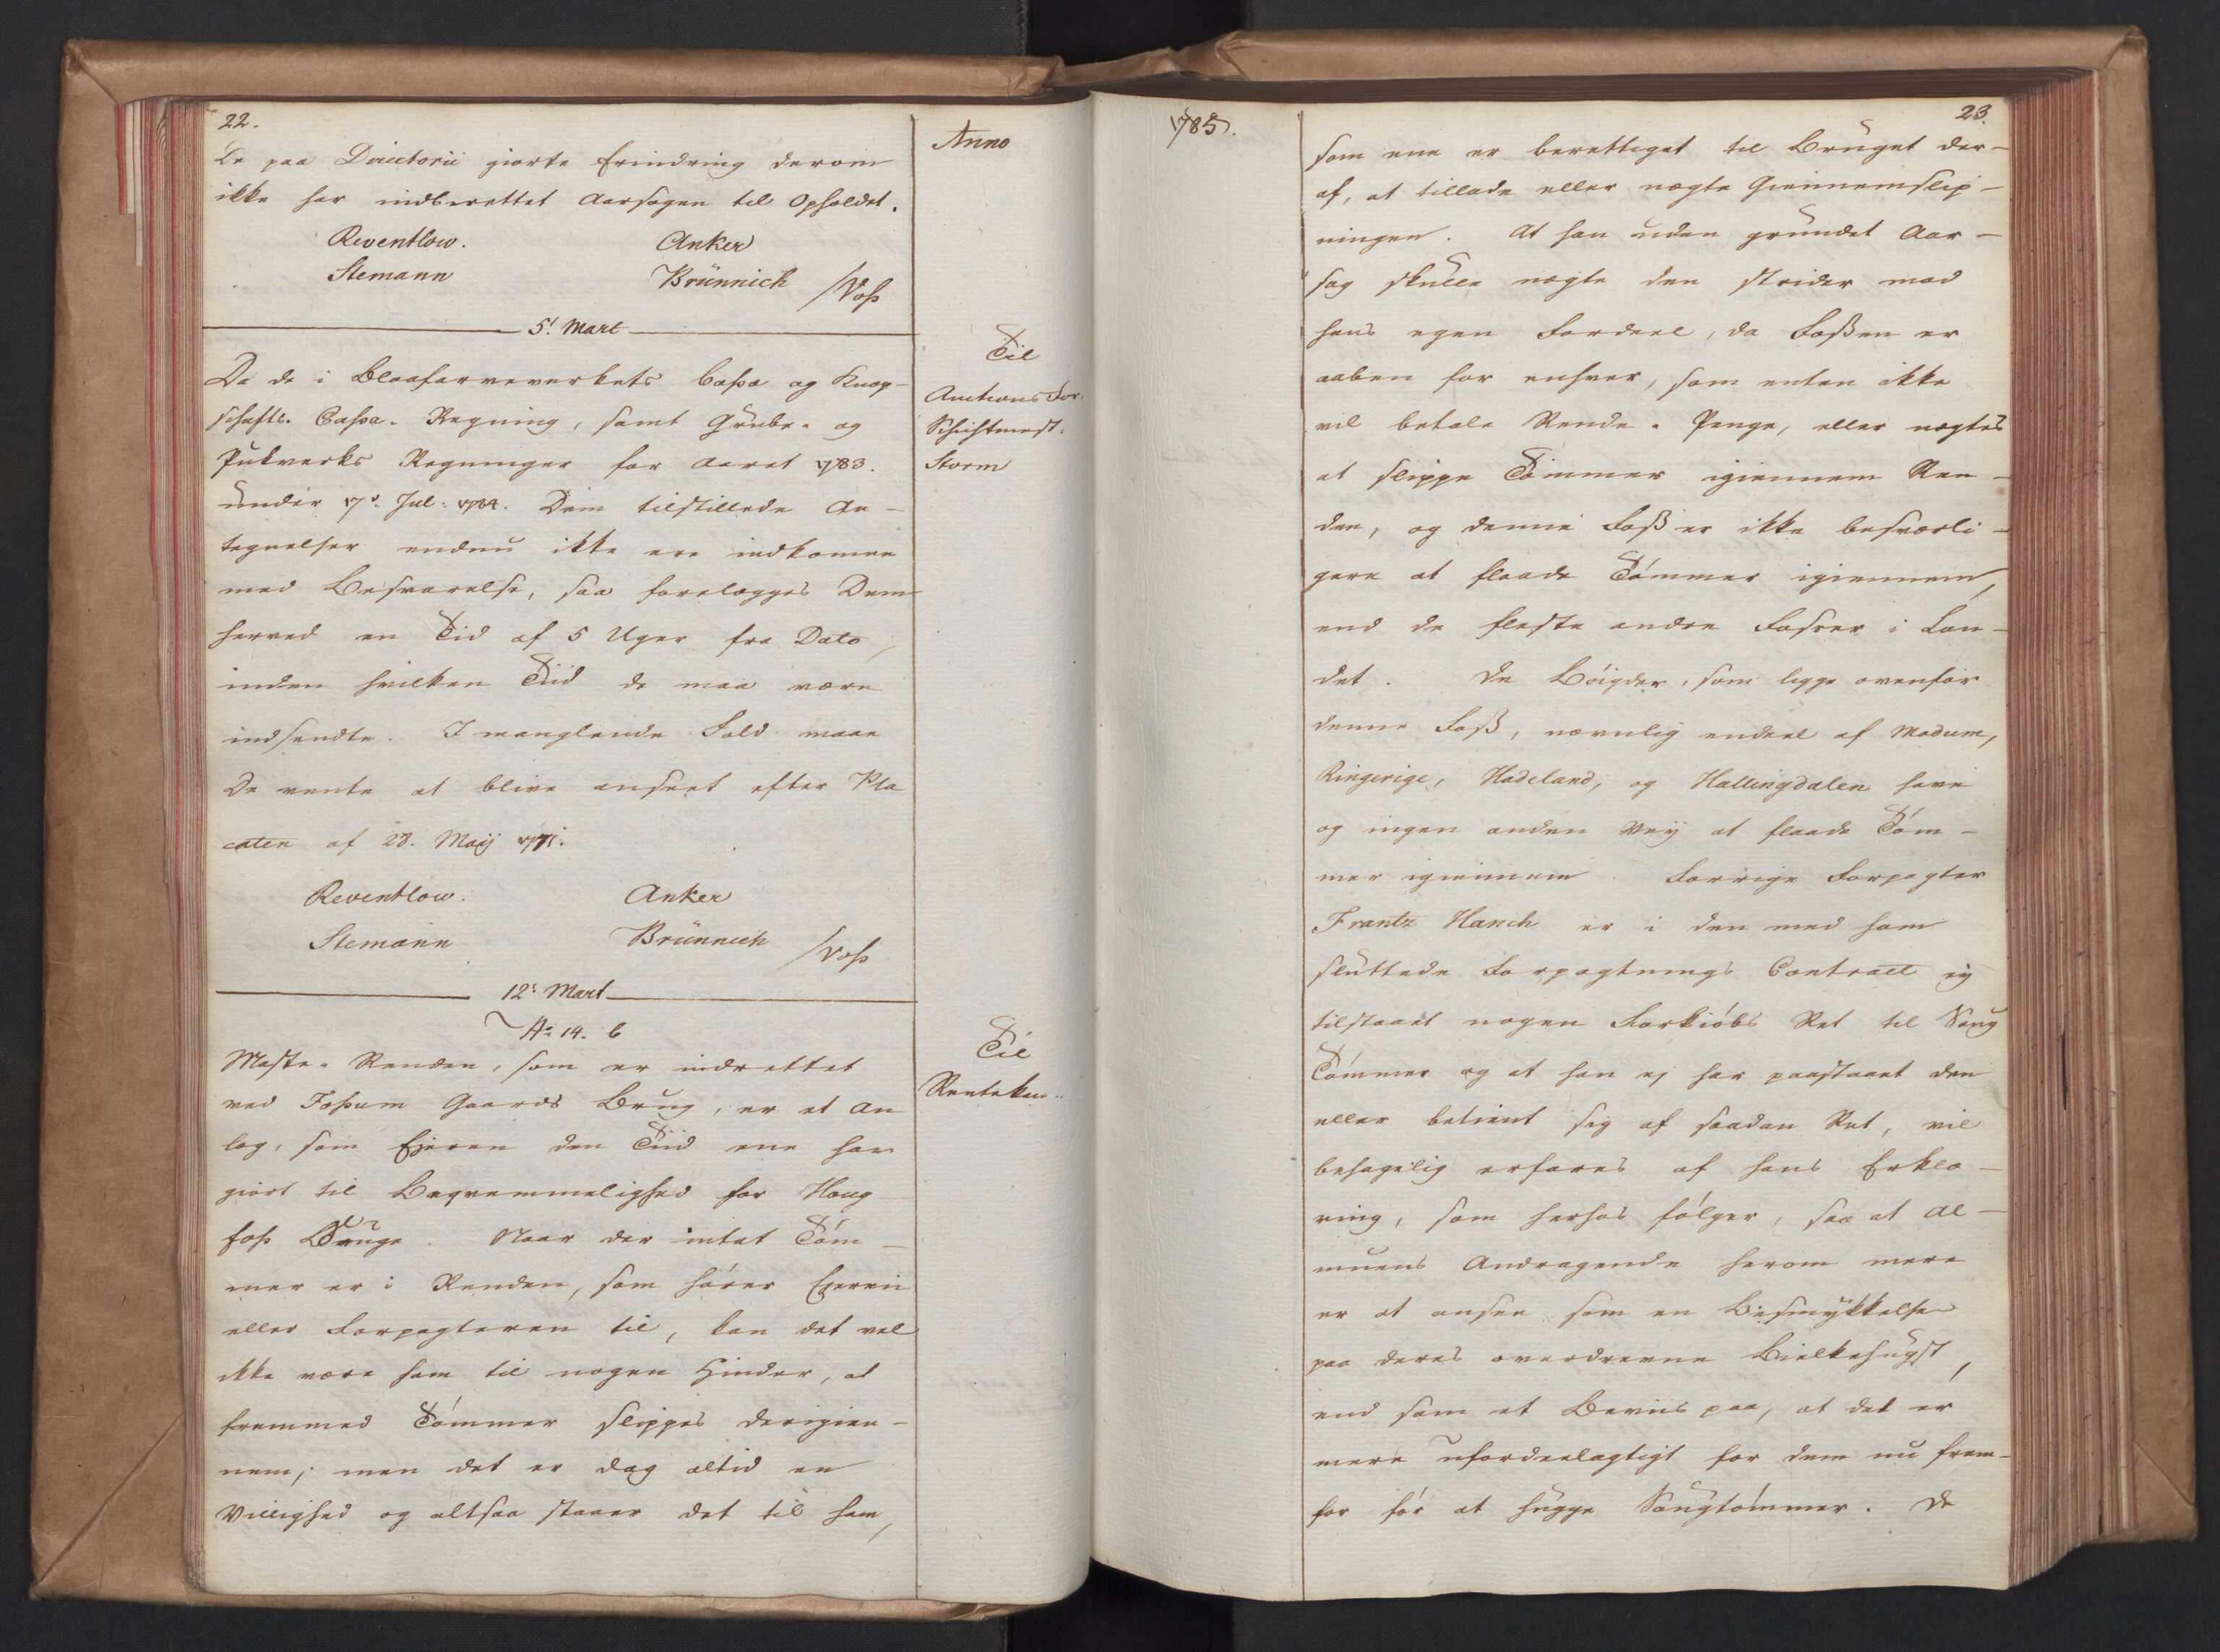 22.
De paa Directorii giorte Erindring derom
ikke har indberettet Aarsagen til Opholdet.
Reventlow. Anker
Stemann Brünnich /Voss
5t Mart
Da de i Blaafarveverkets Cassa og Knap-
schafts-Cassa-Regning, samt Grube- og
Pukverks Regninger for Aaret 1783.
under 17de Jul: 1784. Dem tilstillede An-
tegnelser endnu ikke ere indkomne
med Besvarelse, saa forelægges Dem
herved en Tid af 5 Uger fra Dato,
inden hvilken Tiid de maa være
indsendte. I manglende Fald maae
De vente at blive anseet efter Pla
caten af 28. Maij 1771.
Reventlow. Anker
Stemann Brünnich /Voss
12t Mart
No 14. b
Maste-Renden, som er indrettet
ved Fossum Gaards Brug, er et An
lag, som Ejeren den Tiid ene har
giort til Beqvemmelighed for Houg
foss Bruge. Naar der intet Töm-
mer er i Renden, som hörer Ejeren
eller Forpagteren til, kan det vel
ikke være ham til nogen Hinder, at
fremmed Tömmer slippes derigien-
nem; men det er dog altid en
Villighed og altsaa staaer det til ham,
Anno
Til
Auctions For.
Schichtmest.
Storm
Til
Rentekam..
1785.
23.
som ene er berettiget til Bruget der-
af, at tillade eller nægte Giennemslip-
ningen. At han uden grundet Aar-
sag skulle nægte den strider mod
hans egen Fordeel, da Fossen er
aaben for enhver, som enten ikke
vil betale Rende-Penge, eller nægtes
at slippe Tömmer igiennem Ren-
den, og denne Foss er ikke besværli-
gere at flaade Tömmer igiennem,
end de fleste andre Fosser i Lan-
det. De Böigder, som ligge ovenfor
denne Foss, nævnlig endeel af Modum,
Ringerige, Hadeland, og Hallingdalen have
og ingen anden Veij at flaade Töm-
mer igiennem. Forrige Forpagter
Frantz Hanch er i den med ham
sluttede Forpagtnings Contract ej
tilstaaet nogen Forkiöbs Ret til Saug
Tömmer og at han ej har paastaaet den
eller betient sig af saadan Ret, vil
behagelig erfares af hans Erklæ-
ring, som herhos fölger, saa at Al-
muens Andragende herom mere
er at ansee som en Besmykkelse
paa deres overdrevne Bielkehugst,
end som et Beviis paa, at det er
mere ufordeelagtigt for dem nu frem-
for för at hugge Saugtömmer. De